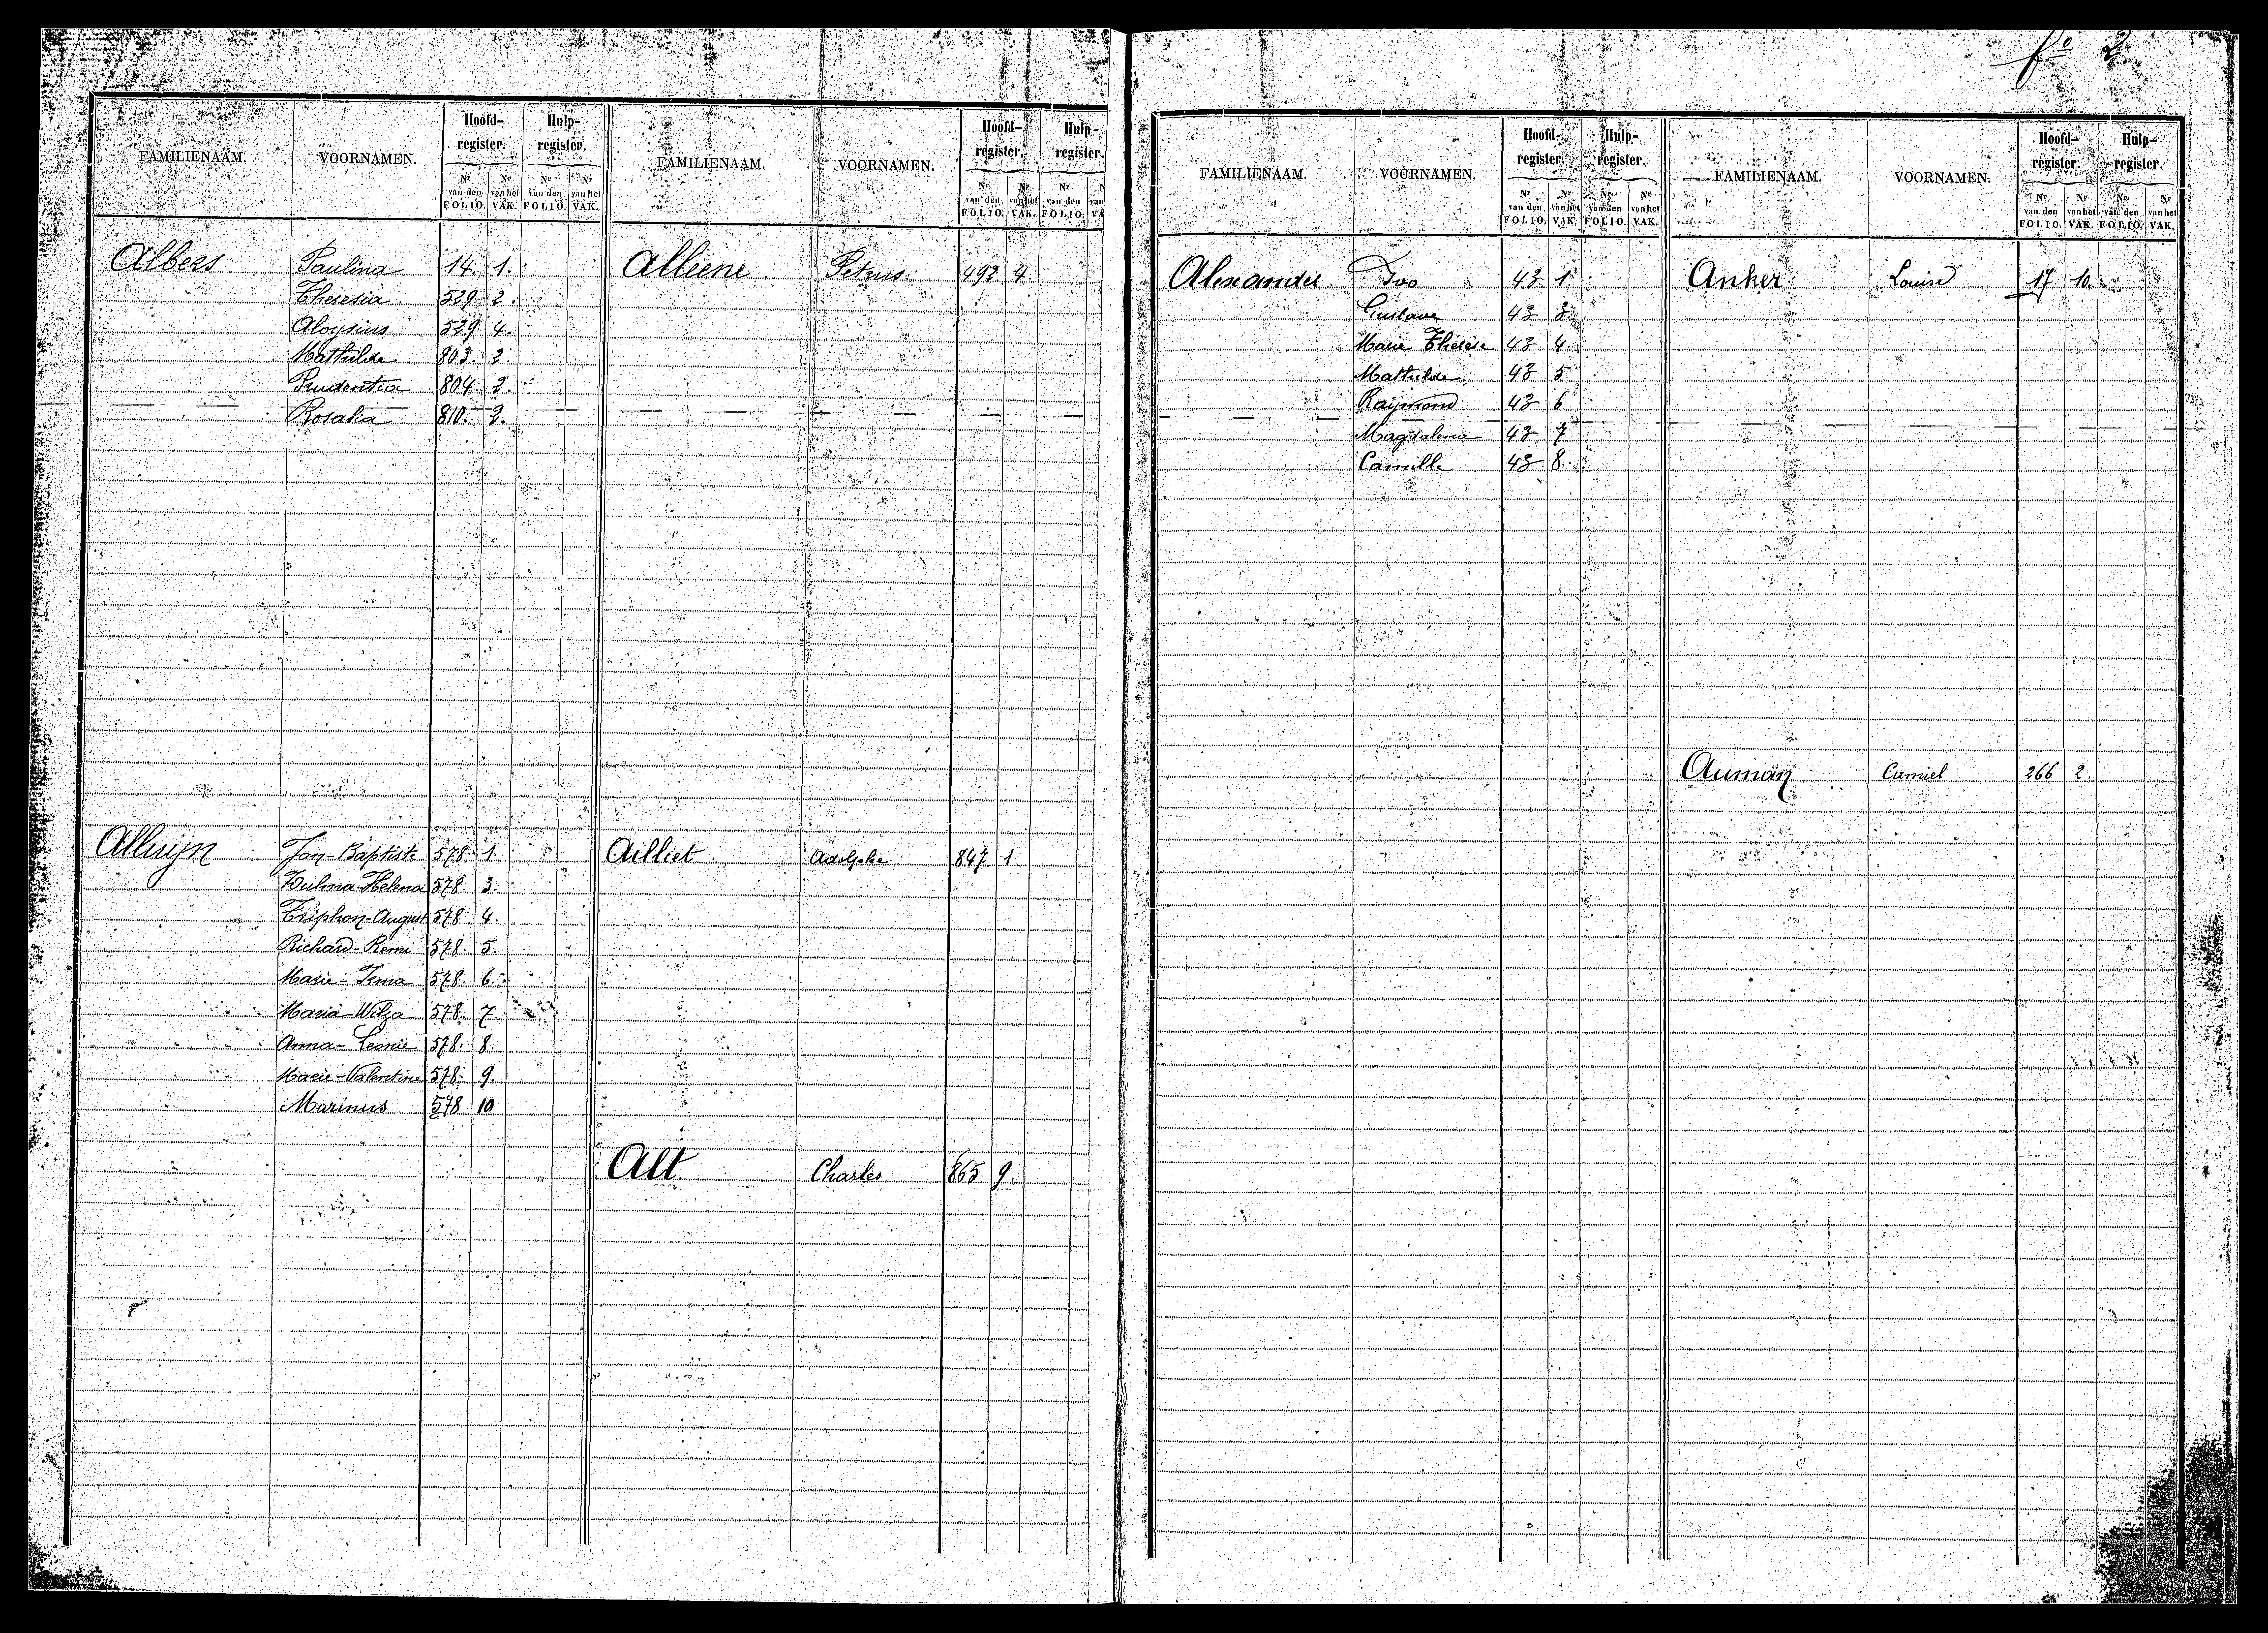 fo 2
FAMILIENAAM. VOORNAMEN. Hoofd-register. Hulp-register.
Nr van den FOLIO. Nr van het VAK. Nr van den FOLIO. Nr van het VAK.
Albers Paulina 14. 1.
Theresia 529 2.
Aloysius 529 4.
Mathilde 803. 2.
Prudentia 804. 2.
Rosalia 810. 2.
Alluijn Jan-Baptiste 578. 1.
Zulma-Helena 578. 3.
Triphon-August 578 4.
Richard-Remi 578. 5.
Marie-Irma 578. 6.
Maria-Wilza 578. 7.
Anna-Leonie 578. 8.
Marie-Valentine 578. 9.
Marinus 578 10
FAMILIENAAM. VOORNAMEN. Hoofd-register. Hulp-register.
Nr van den FOLIO. Nr van het VAK. Nr van den FOLIO.
Alliene Petrus. 492 4.
Ailliet Adolphe 847 1
Alt Charles 865 9.
FAMILIENAAM. VOORNAMEN. Hoofd-register. Hulp-register.
Nr van den FOLIO. Nr van het VAK. Nr van den FOLIO. Nr van het VAK.
Alexander Ivo 43 1
Gustave 43 3
Marie Thérèse 43 4.
Mathilde 43 5
Raymond 43 6
Magdalena 43 7
Camille 43 8.
FAMILIENAAM. VOORNAMEN. Hoofd-register. Hulp-register.
Nr van den FOLIO. Nr van het VAK. Nr van den FOLIO. Nr van het VAK.
Anker Louise 17 10.
Auman Camiel 266 2.